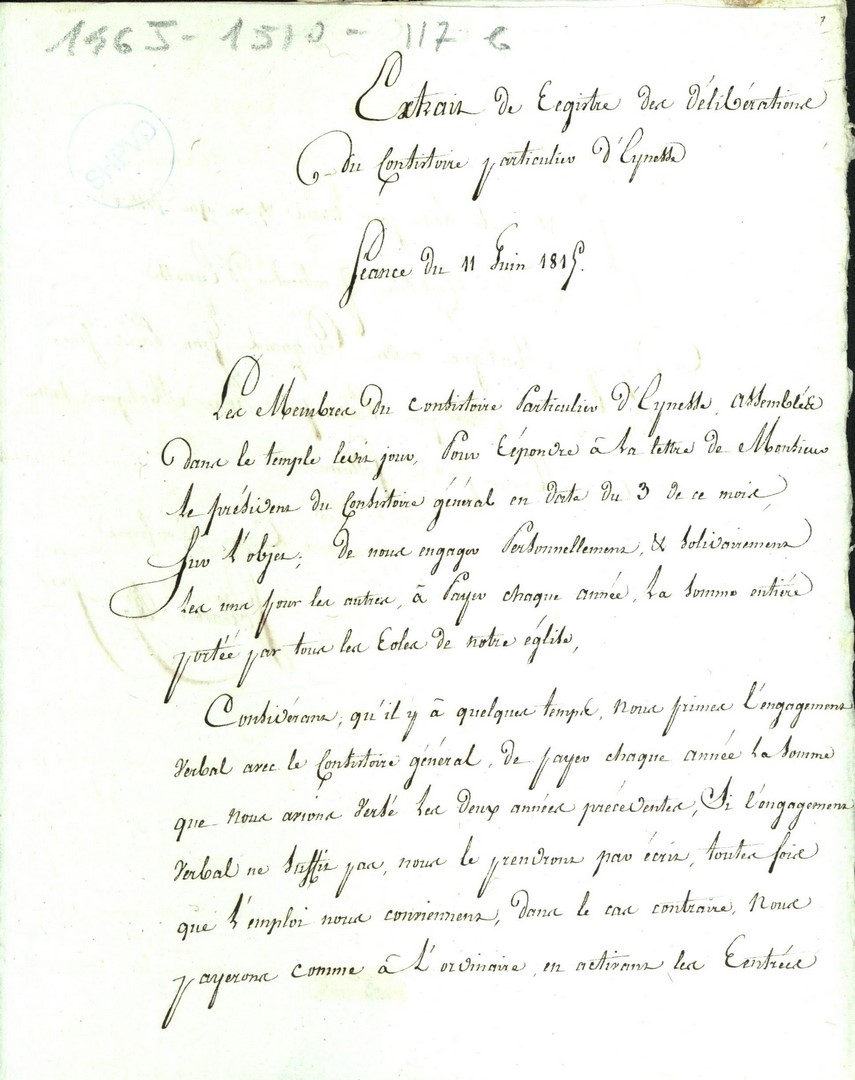 1465-1510-117 6
SHPVD
Extrait de Registre des délibérations
du Consistoire particulier d'Eynesse
Séance du 11 Juin 1815.
Les Membres du consistoire Particulier d'Eynesse, assemblés
dans le temple ledit jour, Pour Répondre à la lettre de Monsieur
le président du Consistoire général en date du 3 de ce mois,
Sur l'objet; de nous engager Personnellement, & solidairement
les uns pour les autres, à Payer chaque année, la somme entière
portée par tous les Roles de notre église,
Considérant, qu'il y à quelques temps, nous primes l'engagement
verbal avec le Consistoire général, de payer chaque année la somme
que nous avions versé les deux années précédentes, Si l'engagement
verbal ne suffit pas, nous le prendrons par écrit, toutes fois
que l'emploi nous conviennent, dans le cas contraire, nous
payerons comme à l'ordinaire, en activant les Rentrées